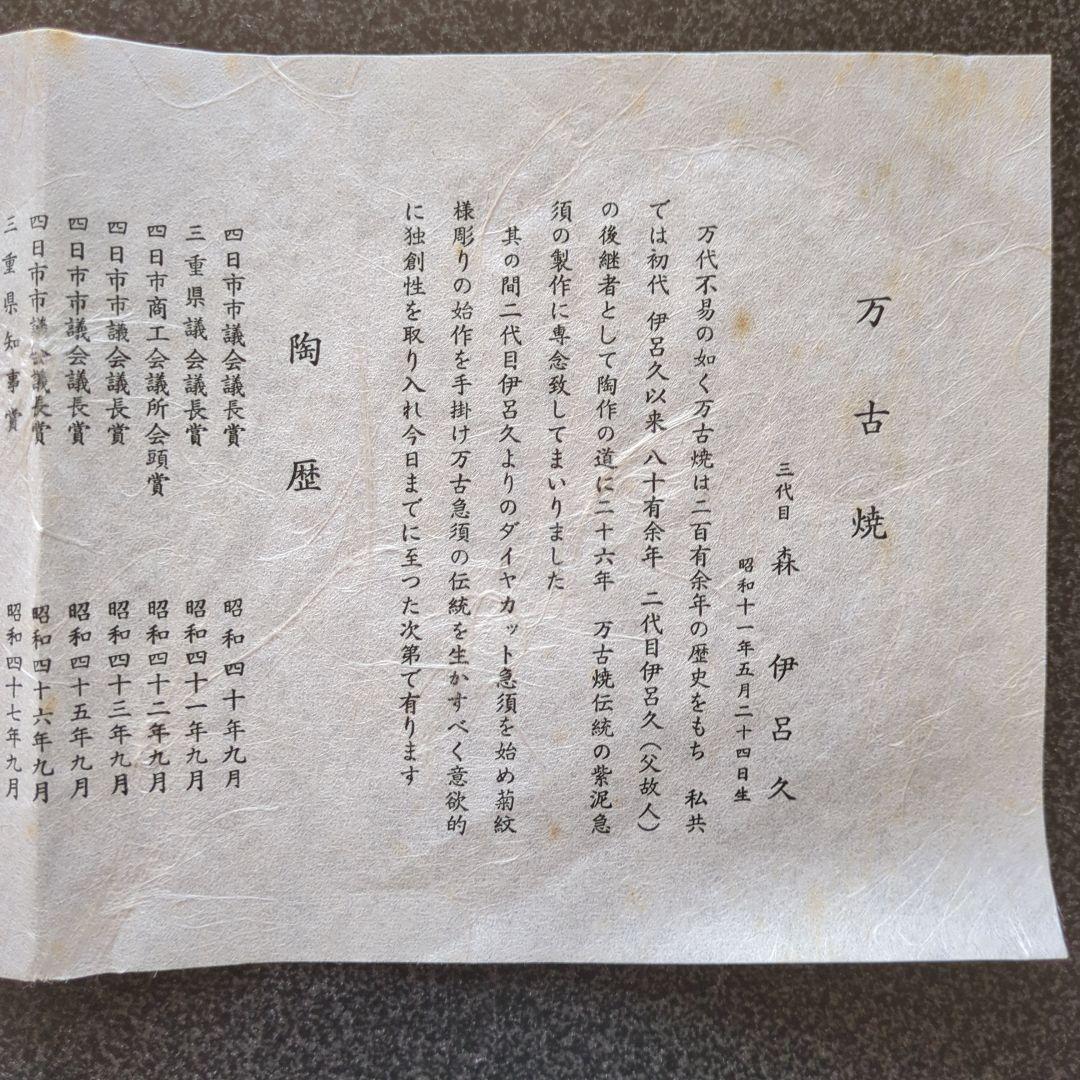 万古焼
三代目 森伊呂久
昭和十一年五月二十四日生
万代不易の如く万古焼は二百有余年の歴史をもち 私共
では初代 伊呂久以来 八十有余年 二代目伊呂久（父故人）
の後継者として陶作の道に二十六年 万古焼伝統の紫泥急
須の製作に専念致してまいりました
其の間二代目伊呂久よりのダイヤカット急須を始め菊紋
様彫りの始作を手掛け万古急須の伝統を生かすべく意欲的
に独創性を取り入れ今日までに至つた次第で有ります
陶歴
四日市市議会議長賞 昭和四十年九月
三重県議会議長賞 昭和四十一年九月
四日市商工会議所会頭賞 昭和四十二年九月
四日市市議会議長賞 昭和四十三年九月
四日市市議会議長賞 昭和四十五年九月
四日市市議会議長賞 昭和四十六年九月
三重県知事賞 昭和四十七年九月